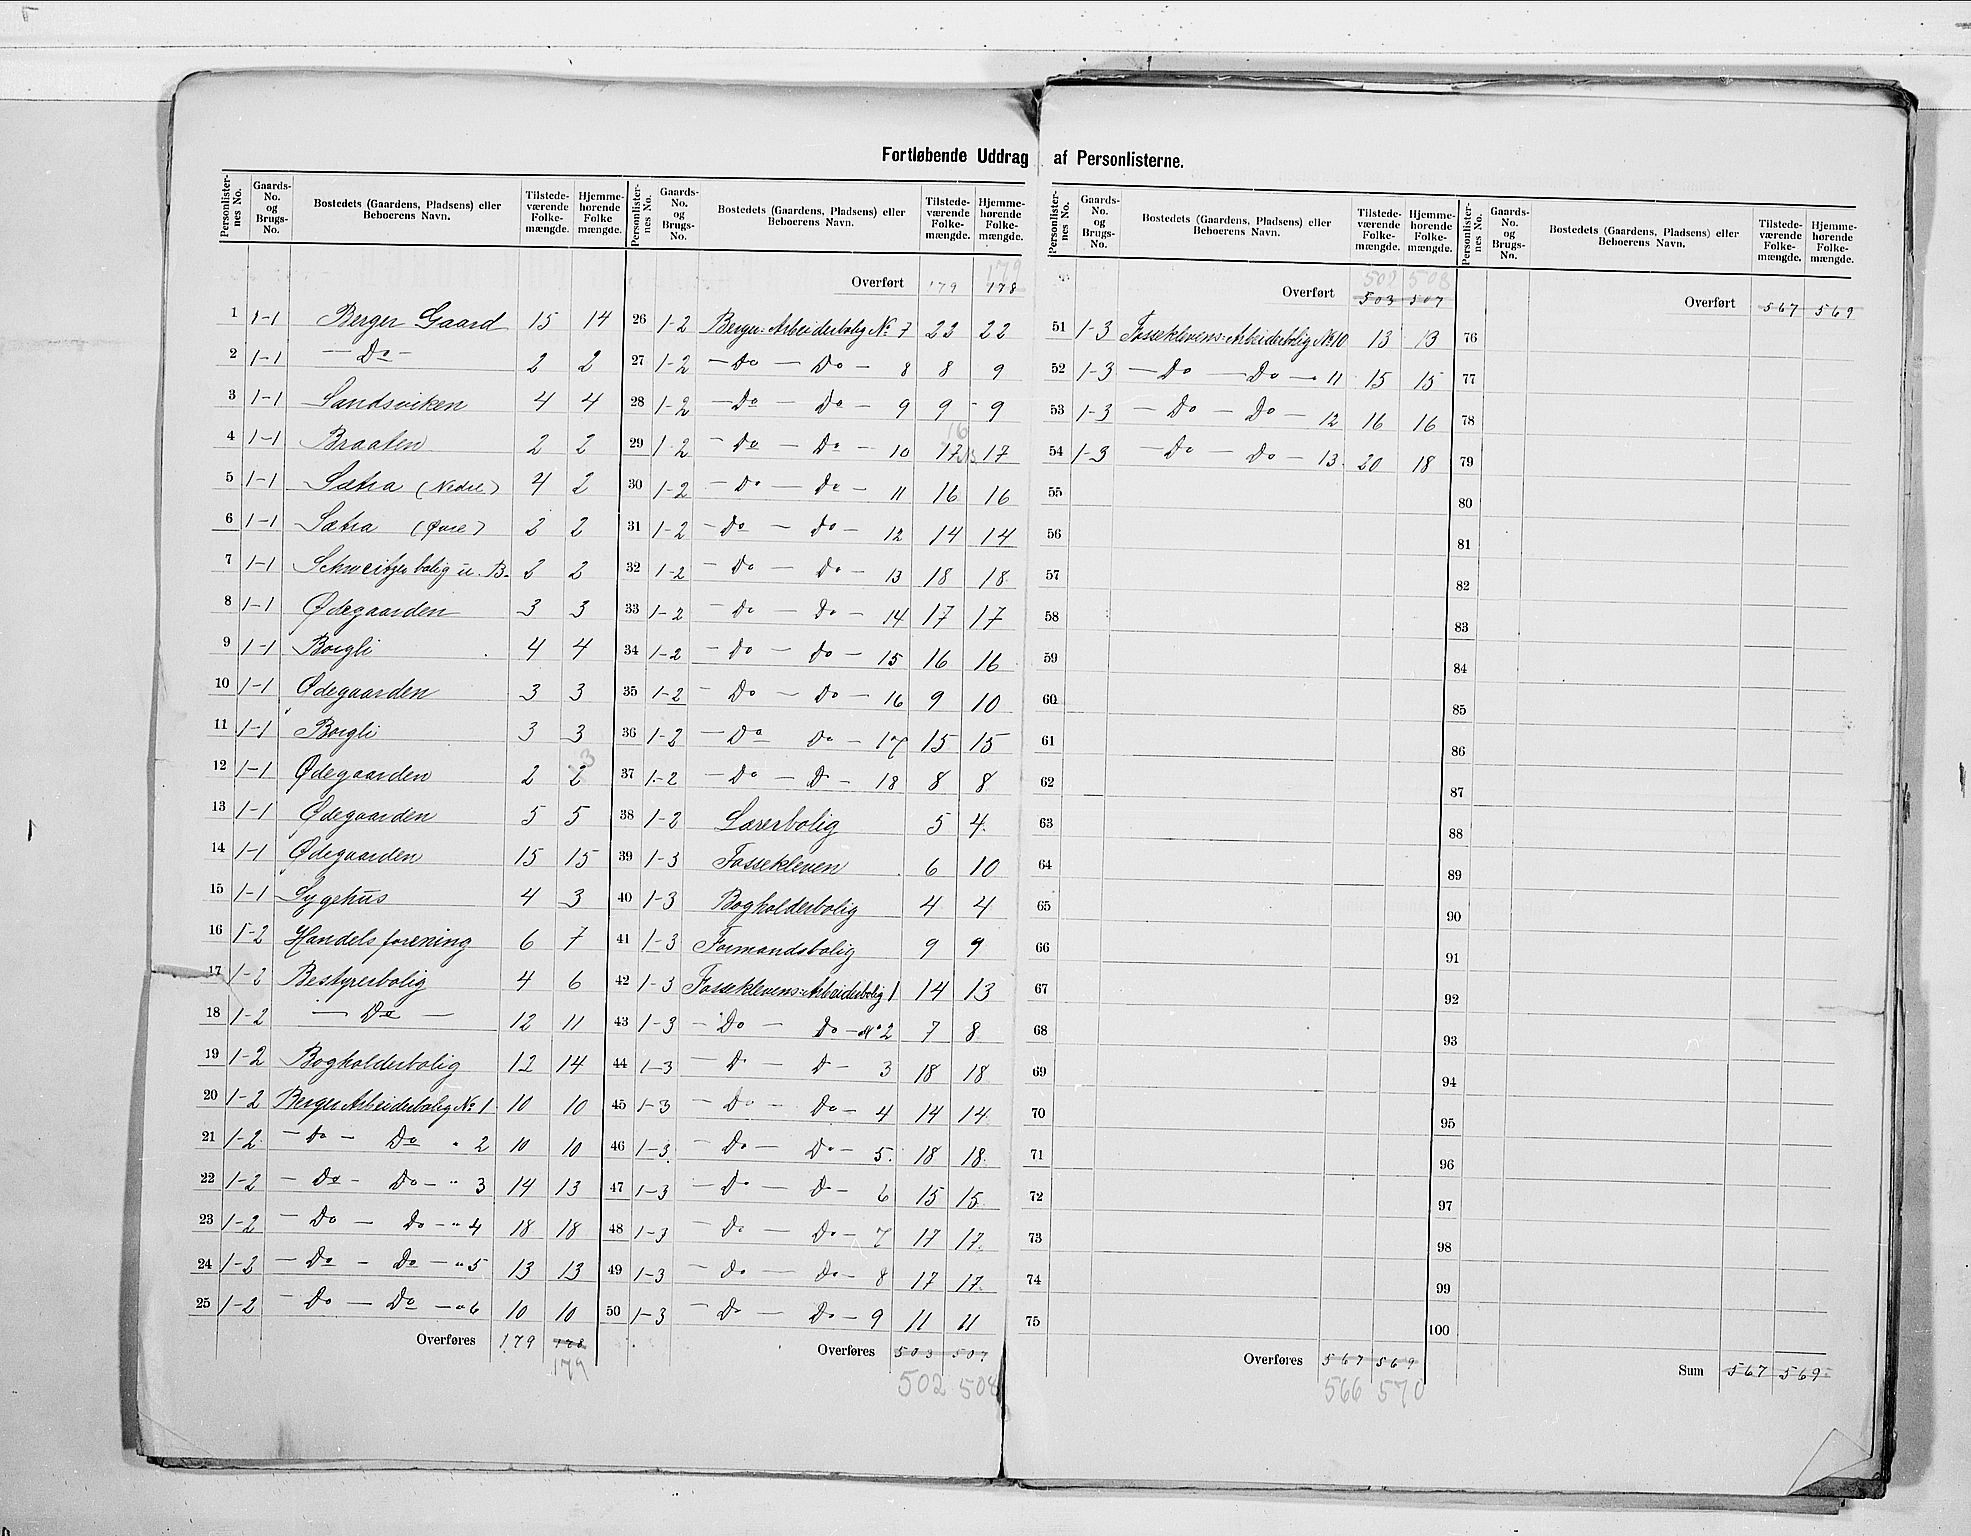 Fortløbende Uddrag af Personlisterne.
Personlister-nes No. Gaards-No. og Brugs-No. Bostedets (Gaardens, Pladsens) eller Beboerens Navn. Tilstede-værende Folke-mængde. Hjemme-hørende Folke mængde.
1 1-1 Berger Gaard 15 14
2 1-1 — Do — 2 2
3 1-1 Sandsviken 4 4
4 1-1 Braaten 2 2
5 1-1 Sætra (Nedre) 4 2
6 1-1 Sætra (Øvre) 2 2
7 1-1 Schweitzerbolig u. B. 2 2
8 1-1 Ødegaarden 3 3
9 1-1 Borgli 4 4
10 1-1 Ødegaarden 3 3
11 1-1 Borgli 3 3
12 1-1 Ødegaarden 2 2 3
13 1-1 Ødegaarden 5 5
14 1-1 Ødegaarden 15 15
15 1-1 Sygehus 4 3
16 1-2 Handelsforening 6 7
17 1-2 Bestyrerbolig 4 6
18 1-2 — Do — 12 11
19 1-2 Bogholderbolig 12 14
20 1-2 Berger Arbeiderbolig No 1 10 10
21 1-2 — Do — Do " 2 10 10
22 1-2 — Do — Do — " 3 14 13
23 1-2 — Do — Do — " 4 18 18
24 1-2 — Do — Do — " 5 13 13
25 1-2 — Do — Do — " 6 10 10
Overføres 179 178
179
Personlister-nes No. Gaards-No. og Brugs-No. Bostedets (Gaardens, Pladsens) eller Beboerens Navn. Tilstede-værende Folke-mængde. Hjemme-hørende Folke-mængde.
179
Overført 179 178
26 1-2 Berger: Arbeiderbolig No 7 22 22
27 1-2 — Do — Do — 8 8 9
28 1-2 — Do — Do — 9 9 9
29 1-2 — Do — Do — 10 17 16 17
30 1-2 — Do — Do — 11 16 16
31 1-2 — Do — Do — 12 14 14
32 1-2 — Do — Do — 13 18 18
33 1-2 — Do — Do — 14 17 17
34 1-2 — Do — Do — 15 16 16
35 1-2 — Do — Do — 16 9 10
36 1-2 — Do Do — 17 15 15
37 1-2 — Do — Do — 18 8 8
38 1-2 Lærerbolig 5 4
39 1-3 Fossekleven 6 10
40 1-3 Bogholderbolig 4 4
41 1-3 Formandsbolig 9 9
42 1-3 Fosseklevens: Arbeiderbolig 1 14 13
43 1-3 — Do — Do — No 2 7 8
44 1-3 — Do — Do — 3 18 18
45 1-3 — Do — Do — 4 14 14
46 1-3 — Do — Do — 5 18 18
47 1-3 — Do — Do — 6 15 15
48 1-3 — Do — Do — 7 17 17
49 1-3 — Do — Do — 8 17 17
50 1-3 — Do — Do — 9 11 11
Overføres 503 507
502 508
Personlister-nes No. Gaards-No. og Brugs-No. Bostedets (Gaardens, Pladsens) eller Beboerens Navn. Tilstede-værende Folke-mængde. Hjemme-hørende Folke-mængde.
502 508
Overført 503 507
51 1-3 Fosseklevens: Arbeiderbolig No 10 13 13
52 1-3 — Do — Do — 11 15 15
53 1-3 — Do — Do — 12 16 16
54 1-3 — Do — Do — 13 20 18
55
56
57
58
59
60
61
62
63
64
65
66
67
68
69
70
71
72
73
74
75
Overføres 567 569
566 570
Personlister-nes No. Gaards-No. og Brugs-No. Bostedets (Gaardens, Pladsens) eller Beboerens Navn. Tilstede-værende Folke-mængde. Hjemme-hørende Folke-mængde.
Overført 567 569
76
77
78
79
80
81
82
83
84
85
86
87
88
89
90
91
92
93
94
95
96
97
98
99
100
Sum 567 569